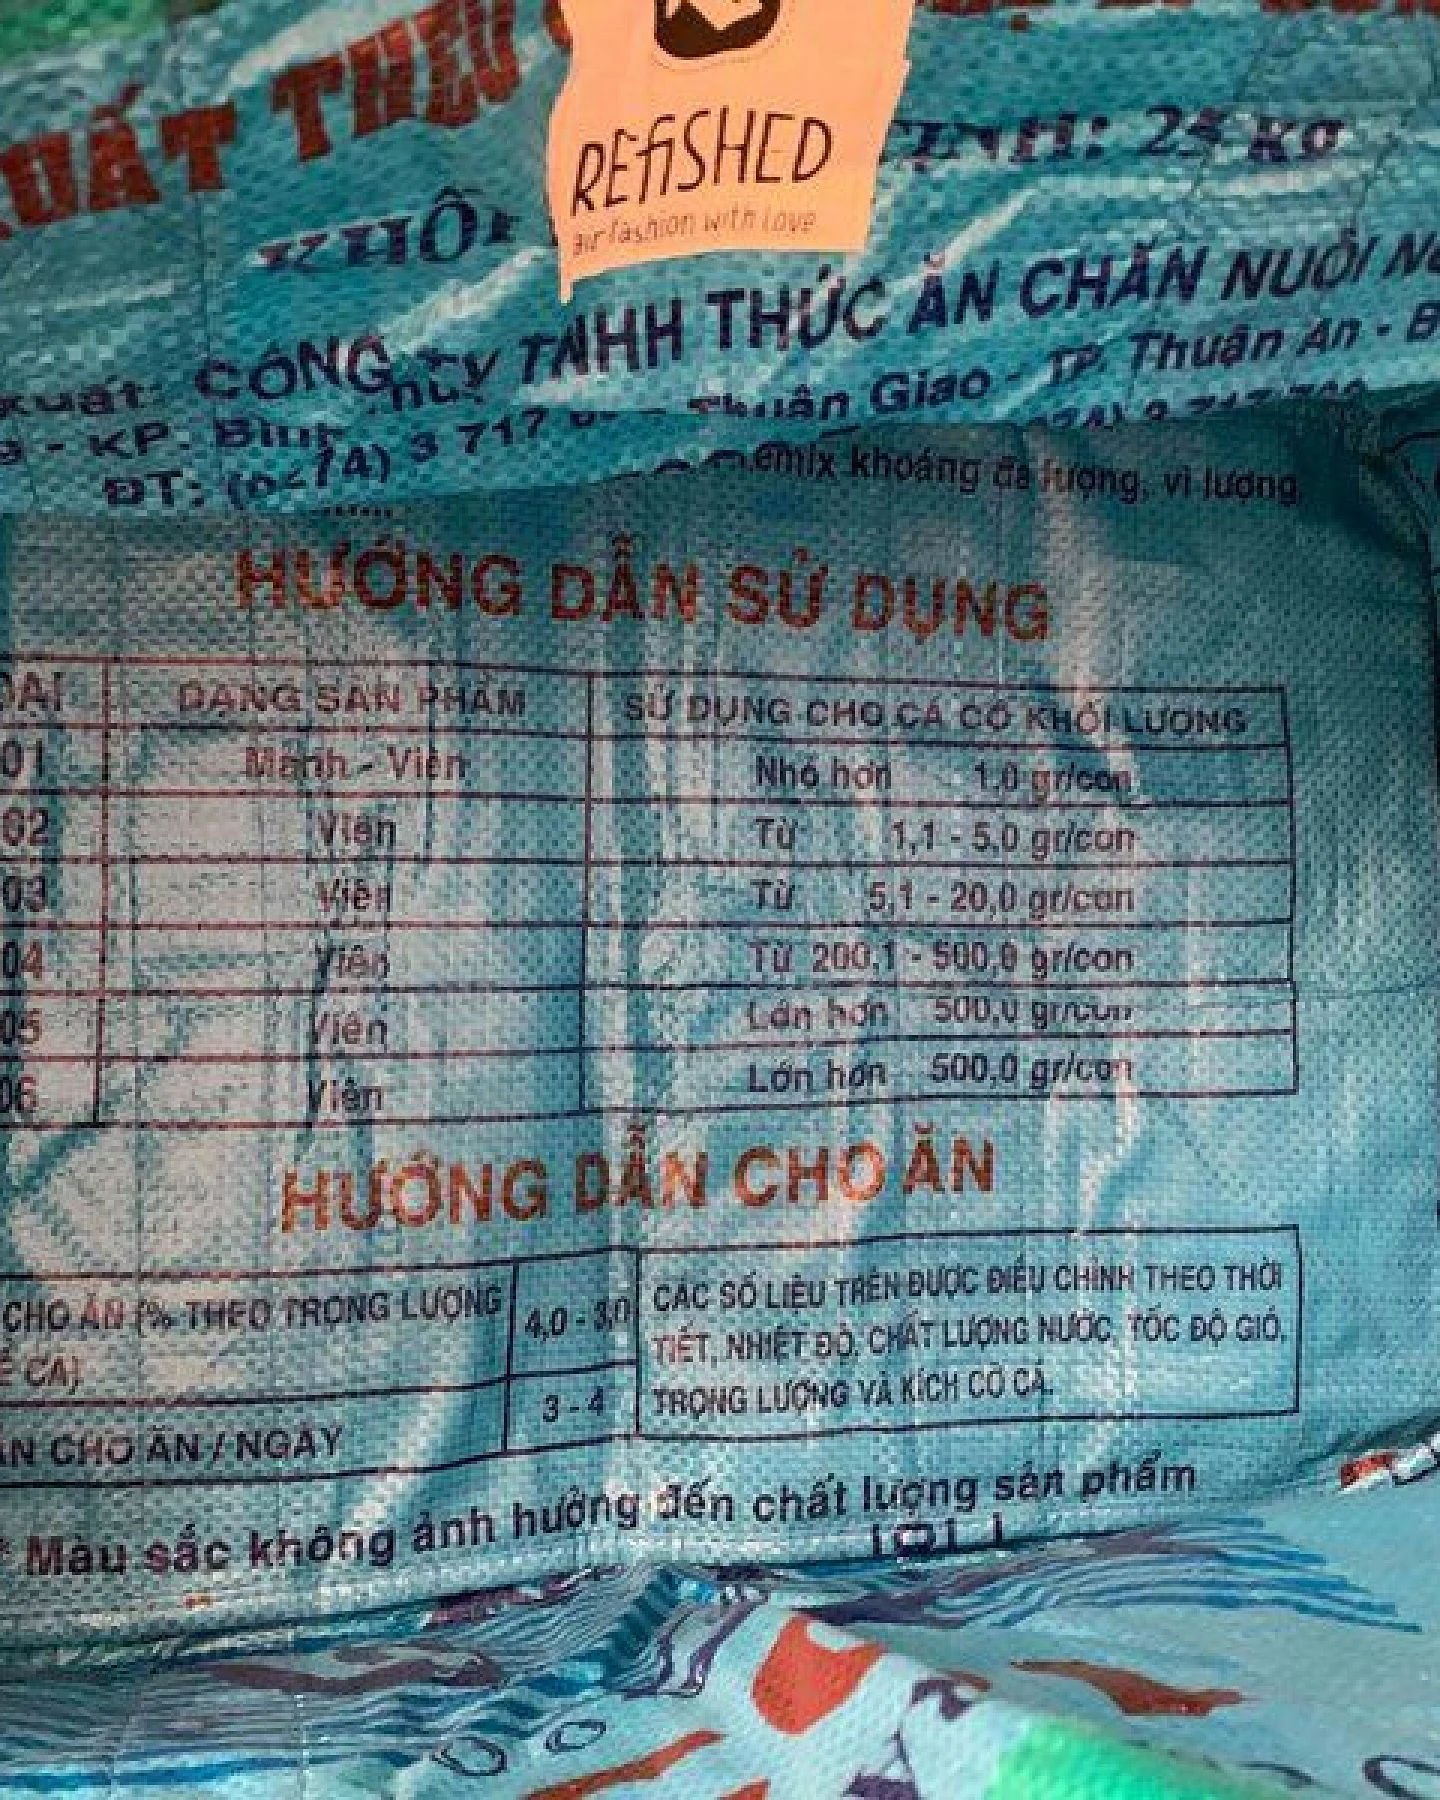 XUẤT THEO
REFISHED
air fashion with love
TỊNH: 25 kg
KHỐI
CÔNG TY TNHH THỨC ĂN CHĂN NUÔI
- KP. Bình
Thuận Giao - TP. Thuận An - B
ĐT: (0274) 3 717
(0274) 3 717
emix khoáng đa lượng, vi lượng
HƯỚNG DẪN SỬ DỤNG
OẠI DẠNG SẢN PHẨM SỬ DỤNG CHO CÁ CÓ KHỐI LƯỢNG
01 Mảnh - Viên Nhỏ hơn 1,0 gr/con
02 Viên Từ 1,1 - 5,0 gr/con
03 Viên Từ 5,1 - 20,0 gr/con
04 Viên Từ 200,1 - 500,0 gr/con
05 Viên Lớn hơn 500,0 gr/con
06 Viên Lớn hơn 500,0 gr/con
HƯỚNG DẪN CHO ĂN
CHO ĂN (% THEO TRỌNG LƯỢNG
CÁ).
4,0 - 3,0
ẦN CHO ĂN / NGÀY
3 - 4
CÁC SỐ LIỆU TRÊN ĐƯỢC ĐIỀU CHỈNH THEO THỜI
TIẾT, NHIỆT ĐỘ, CHẤT LƯỢNG NƯỚC, TỐC ĐỘ GIÓ,
TRỌNG LƯỢNG VÀ KÍCH CỠ CÁ.
* Màu sắc không ảnh hưởng đến chất lượng sản phẩm